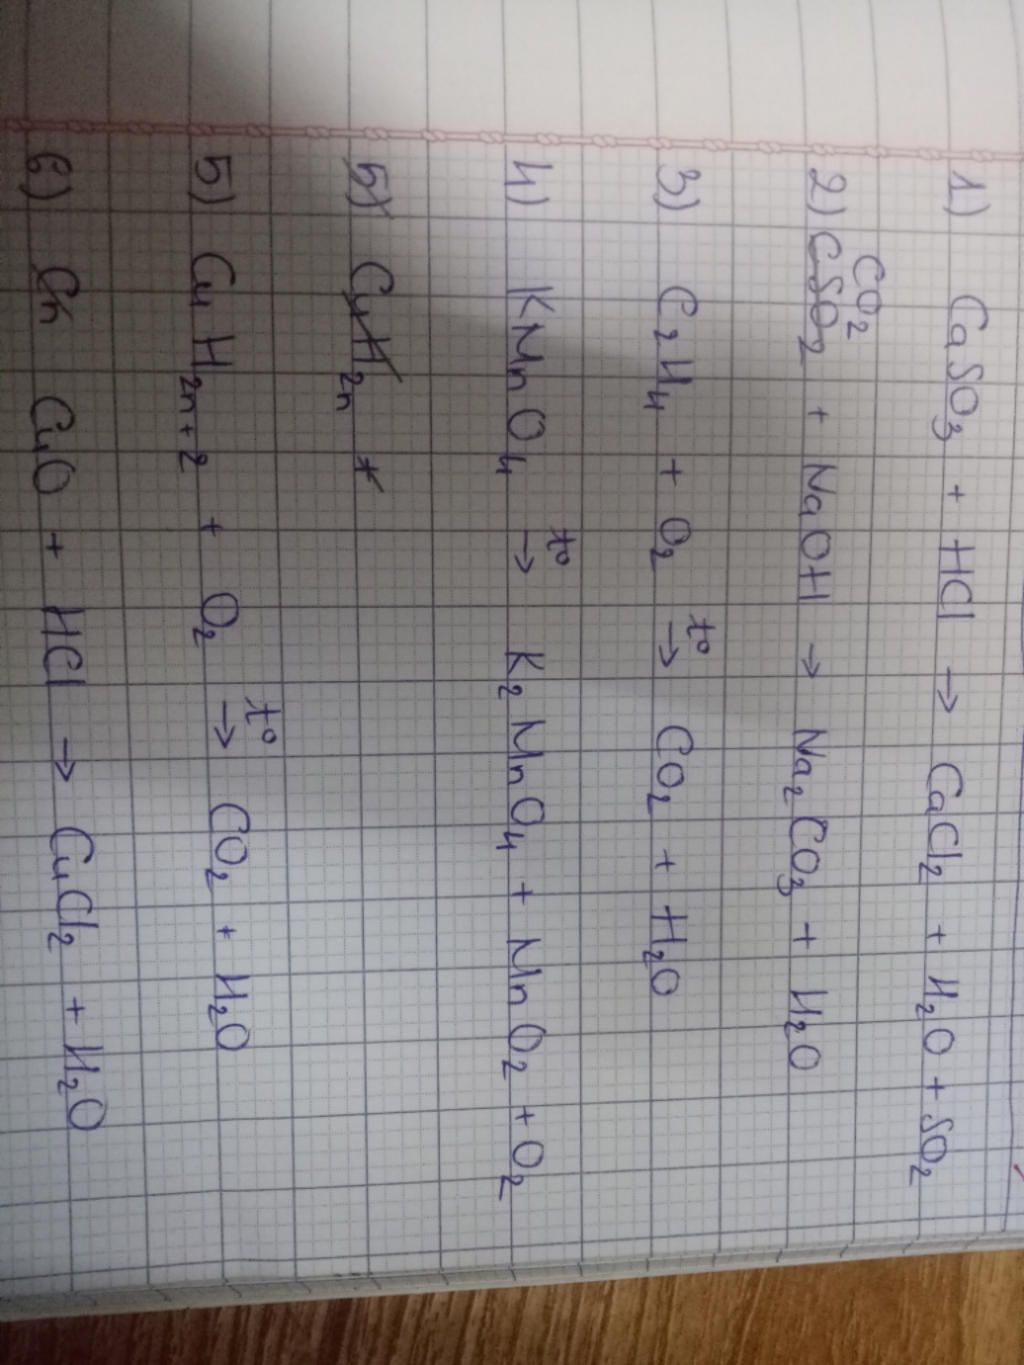 1) CaSO3 + HCl → CaCl2 + H2O + SO2
CO2
2) CSO2 + NaOH → Na2CO3 + H2O
3) C2H4 + O2 t° → CO2 + H2O
4) KMnO4 t° → K2MnO4 + MnO2 + O2
5) CnH2n +
5) CnH2n+2 + O2 t° → CO2 + H2O
6) CuO + HCl → CuCl2 + H2O